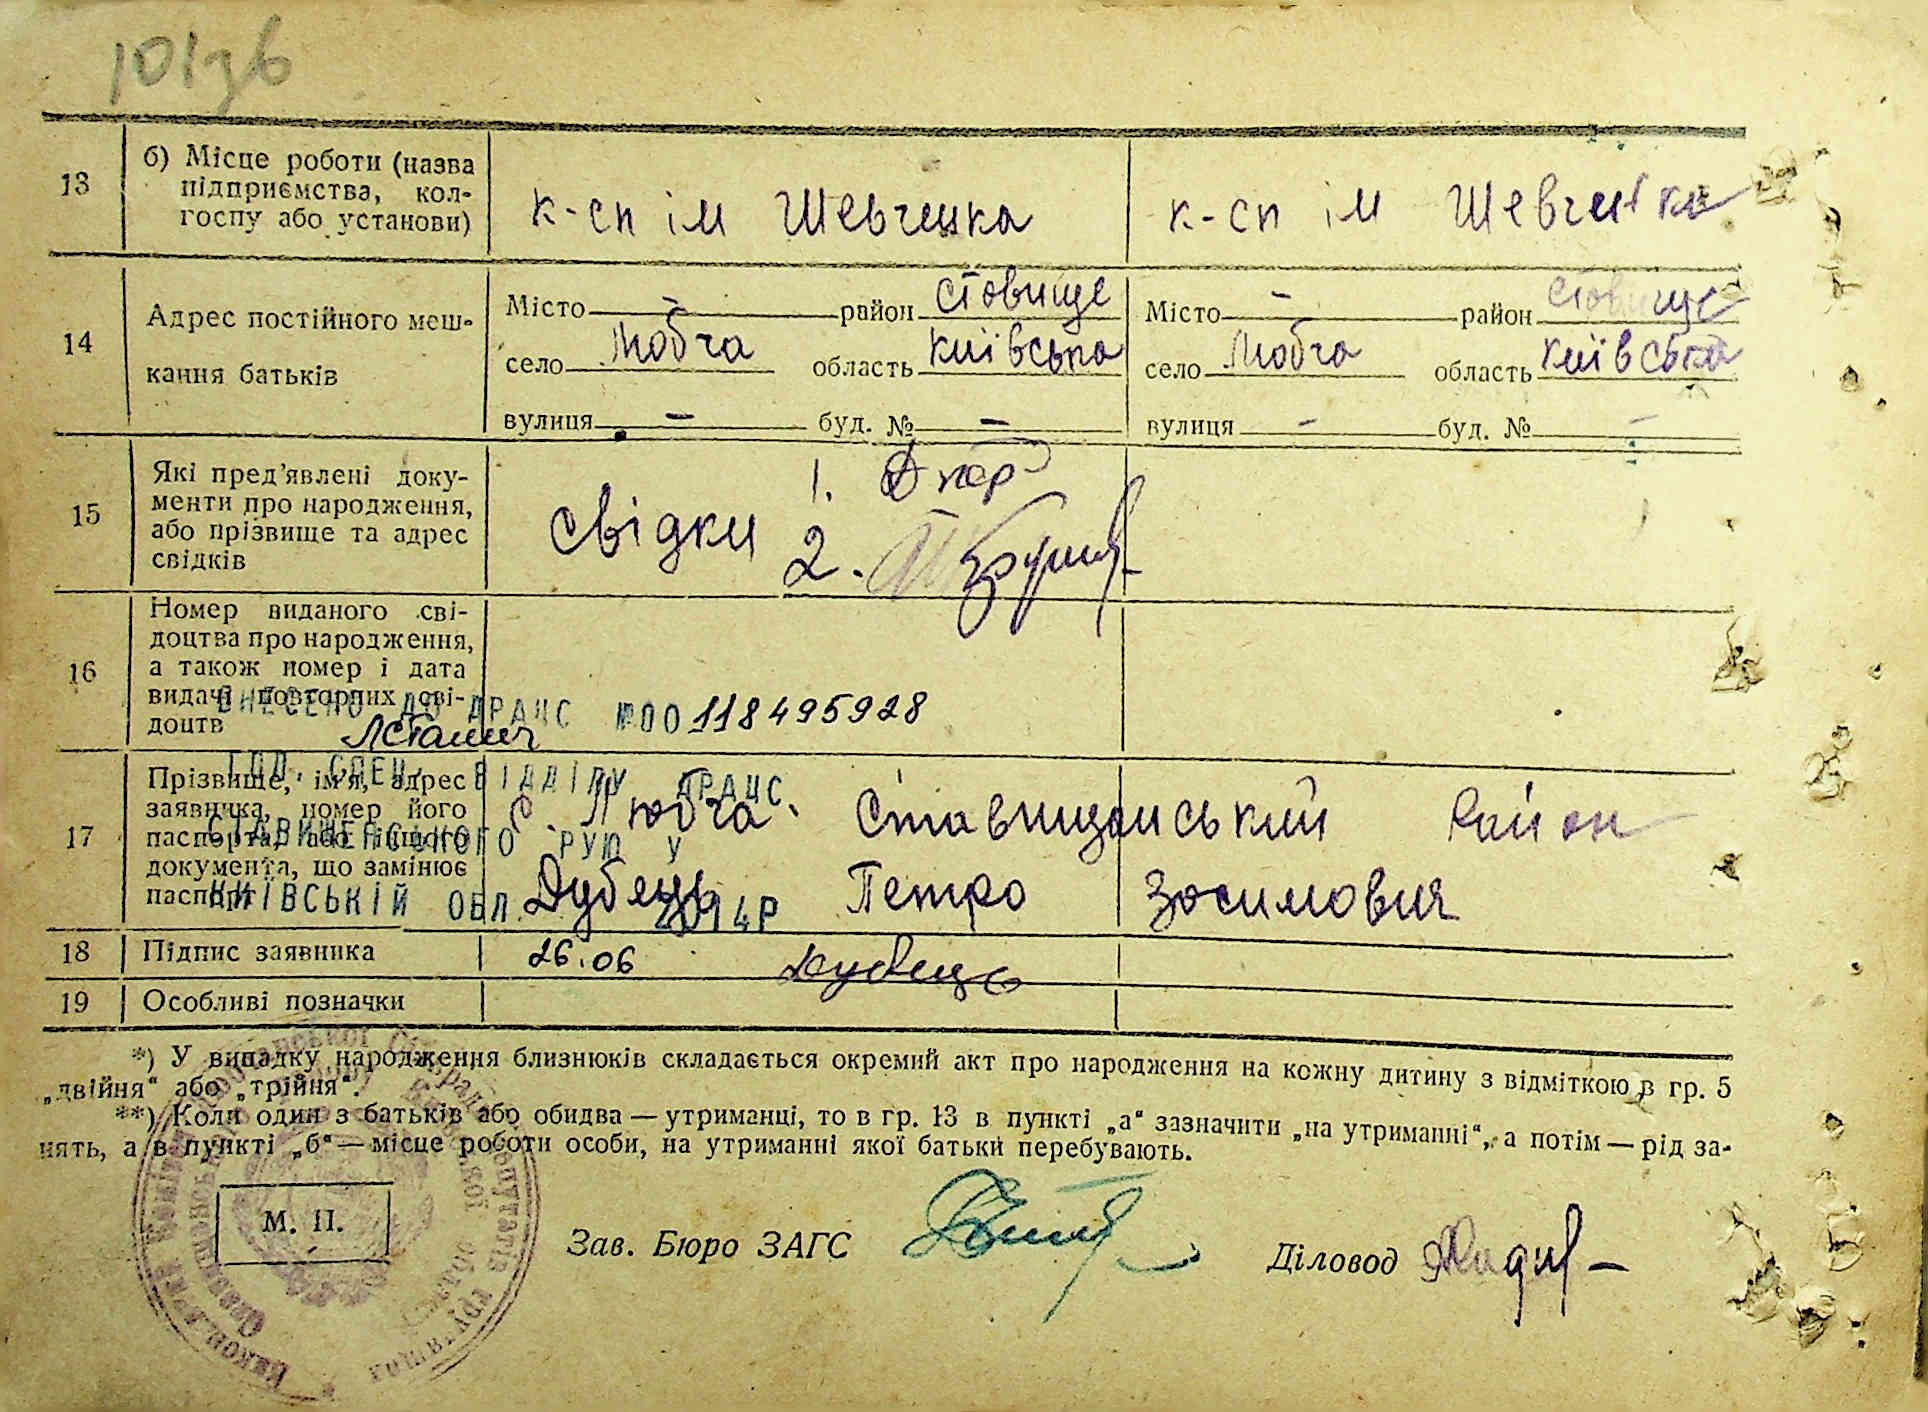 101зв
13 б) Місце роботи (назва
підприємства, кол-
госпу або установи)
к-сп ім Шевченка к-сп ім Шевченка
14 Адрес постійного меш-
кання батьків
Місто — район Ставище Місто — район Ставище
село Любча область Київська село Любча область Київська
вулиця — буд. № — вулиця — буд. № —
15 Які пред'явлені доку-
менти про народження,
або прізвище та адрес
свідків
свідки 1.
2.
16 Номер виданого сві-
доцтва про народження,
а також номер і дата
видачі повторних сві-
доцтв
ВНЕСЕНО ДО ДРАЦС №00118495928
17 Прізвище, ім'я, адрес
заявника, номер його
паспорта, або іншого
документа, що замінює
паспорт
ВІДДІЛУ ДРАЦС
СТАВИЩЕНСЬКОГО РУЮ У
КИЇВСЬКІЙ ОБЛ. 2014Р
с. Любча. Ставищанський Район
Дубець Петро Зосимович
18 Підпис заявника 26.06 Дубець
19 Особливі позначки
*) У випадку народження близнюків складається окремий акт про народження на кожну дитину з відміткою в гр. 5
„двійня“ або „трійня“.
**) Коли один з батьків або обидва — утриманці, то в гр. 13 в пункті „а“ зазначити „на утриманні“, а потім — рід за-
нять, а в пункті „б“ — місце роботи особи, на утриманні якої батьки перебувають.
М. П.
Зав. Бюро ЗАГС Діловод